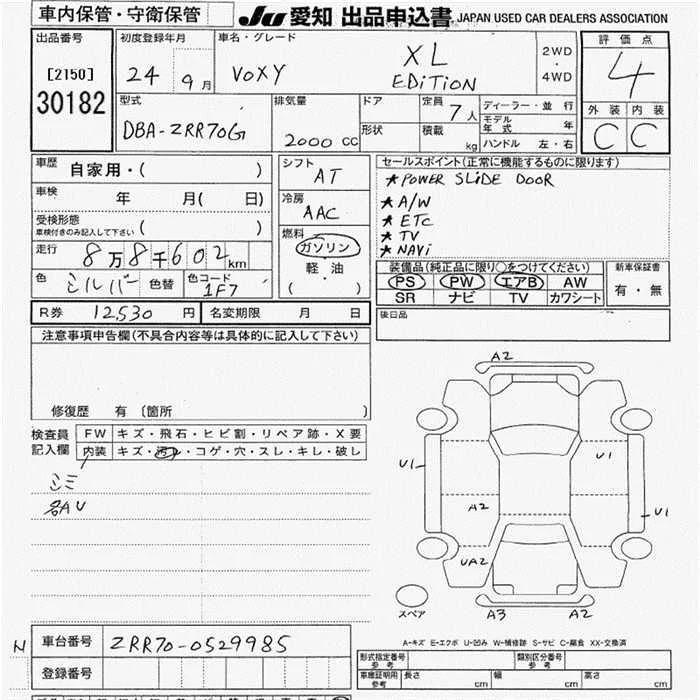 車内保管・守衛保管
JU 愛知 出品申込書 JAPAN USED CAR DEALERS ASSOCIATION
出品番号
[2150]
30182
初度登録年月
24 9月
車名・グレード
VOXY
XL
EDiTiON
2WD
・
4WD
評価点
4
外装 内装
C C
型式
DBA-ZRR70G
排気量
2000 CC
ドア
形状
定員 7人
積載 kg
ディーラー・並行
モデル年式 年
ハンドル 左・右
車歴 自家用・( )
車検 年 月( 日)
受検形態
車検付きのみ記入して下さい ( )
走行 8万8千602km
色 シルバー 色替 色コード 1F7
シフト AT
冷房 AAC
燃料
ガソリン
軽・油
( )
セールスポイント(正常に機能するものに限ります)
★POWER SLiDE DOOR
★A/W
★ETC
★TV
★NAVi
装備品(純正品に限り○をつけてください)
PS PW エアB AW
SR ナビ TV カワシート
新車保証書
有・無
R券 12,530円 名変期限 月 日
後日品
注意事項申告欄(不具合内容等は具体的に記入して下さい)
修復歴 有 〔箇所 〕
検査員記入欄
FW キズ・飛石・ヒビ割・リペア跡・X要
内装 キズ・汚レ・コゲ・穴・スレ・キレ・破レ
シミ
各AU
A2
U1
U1
A2
U1
UA2
スペア
A3
A2
A-キズ E-エクボ U-凹み W-補修跡 S-サビ C-腐食 XX-交換済
N
車台番号 ZRR70-0529985
登録番号
形式指定番号 参考
類別区分番号 参考
車庫証明用 参考 長さ cm 幅 cm 高さ cm